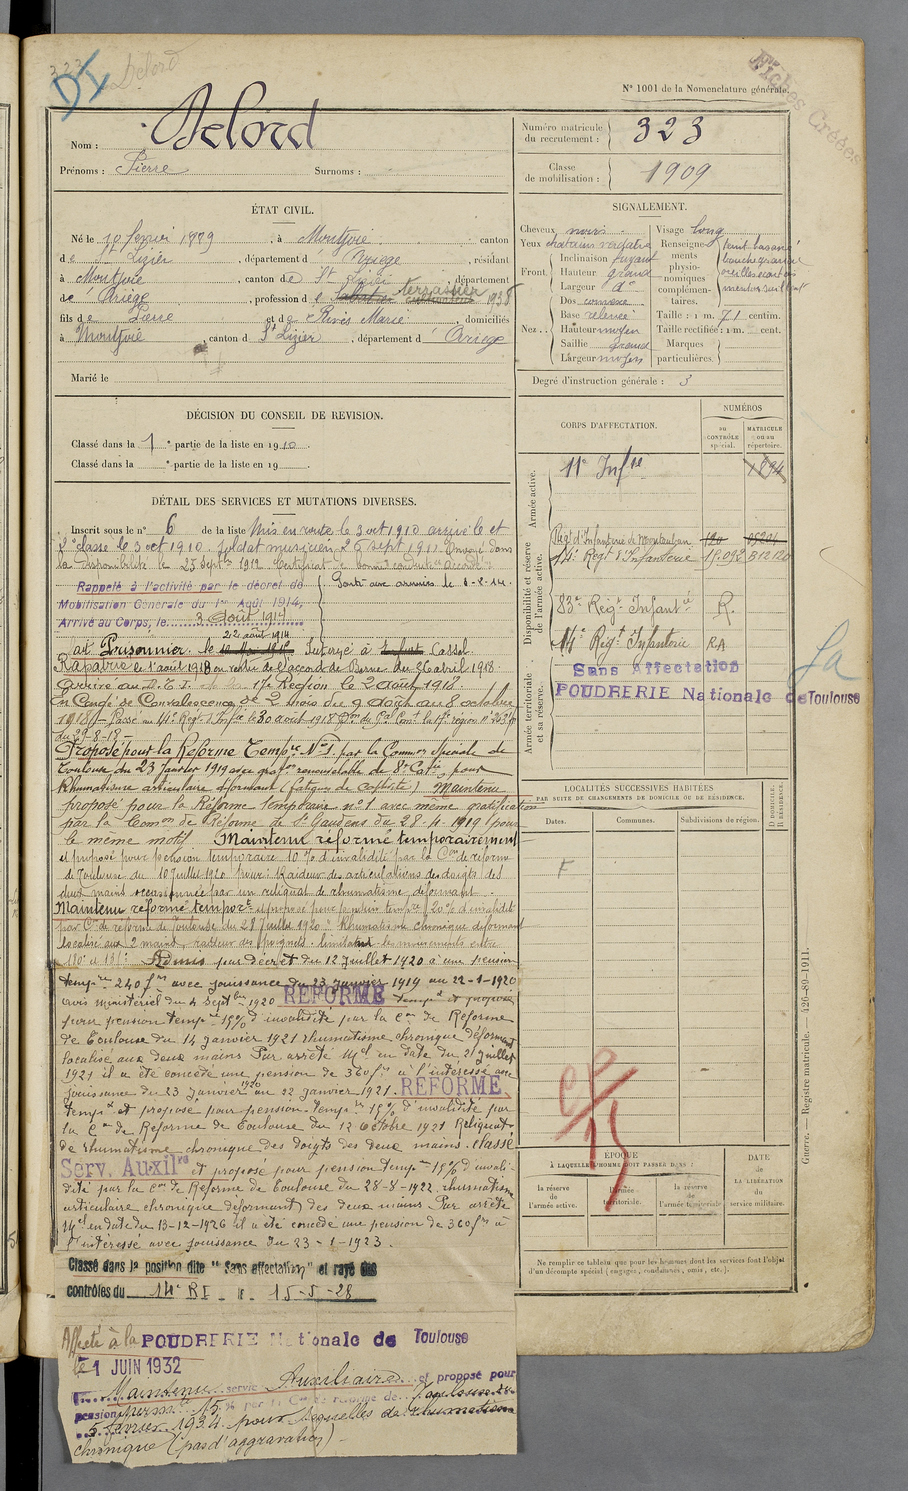 323
DI
Delord
Fiches Créées
N° 1001 de la Nomenclature générale.
Nom : Delord
Prénoms : Pierre Surnoms :
Numéro matricule du recrutement : 323
Classe de mobilisation : 1909
ÉTAT CIVIL.
Né le 10 1889, à Montjoie canton
de St Lizier, département d Ariège, résidant
à Montjoie, canton de St Lizier, département
de Ariège, profession d terrassier 1938
fils de Pierre et de Marie domiciliés
à Montjoie, canton d St Lizier, département d Ariège
Marié le
SIGNALEMENT.
Cheveux noirs
Yeux chatains verdatre
Front. Inclinaison fuyant
Hauteur grand
Largeur do
Nez. Dos convexe
Base relevée
Hauteur moyen
Saillie grand
Largeur moyen
Visage long
Renseignements physionomiques complémentaires. teint basané
bouche grande
Taille : 1 m. 71 centim.
Taille rectifiée : 1 m. cent.
Marques particulières.
Degré d'instruction générale : 3
DÉCISION DU CONSEIL DE REVISION.
Classé dans la 1e partie de la liste en 1910
Classé dans la e partie de la liste en 19
CORPS D'AFFECTATION.
NUMÉROS
au CONTRÔLE spécial.
MATRICULE ou au répertoire.
Armée active.
11e Infie 1894
Disponibilité et réserve de l'armée active.
Régt d'Infanterie de Montauban
14e Régt d'Infanterie 15.092 B12120
83e Régt Infantie R.
14e Régt Infanterie RA
Armée territoriale et sa réserve.
Sans Affectation
POUDRERIE Nationale de Toulouse
DÉTAIL DES SERVICES ET MUTATIONS DIVERSES.
Inscrit sous le n° 6 de la liste Mis en route le 3 oct 1910 arrivé le et
2e classe le 3 oct 1910. Soldat musicien 25 sept 1911. Envoyé dans
la disponibilité le 25 septre 1912. Certificat de bonne conduite accordé
Rappelé à l'activité par le décret de
Mobilisation Générale du 1er Août 1914,
Arrivé au Corps, le 3 Août 1914
Parti aux armées le
22 août 1914
Prisonnier le Interné à Cassel
Rapatrié le 1 août 1918 en vertu de l'accord de Berne du 26 avril 1918
Arrivé au D.T.I. 17e Région le 2 août 1918
En Congé de Convalescence de 2 mois du 9 août au 8 octobre
1918. Passé au 14e Régt d'Infie le 30 août 1918
Proposé pour la Réforme Tempre N°1 par la Common spéciale de
Toulouse du 23 Janvier 1919 avec renouvelable de 8e Catie pour
Rhumatisme articulaire déformant (fatigues de captivité) Maintenu
proposé pour la Réforme temporaire n° 1 avec même gratification
par la Comon de Réforme de St Gaudens du 28-4-1919 pour
le même motif Maintenu réformé temporairement
et proposé pour pension temporaire 10% d'invalidité par la Con de réforme
de Toulouse du 10 juillet 1920 pour: Raideur des articulations des doigts des
deux mains occasionnée par un reliquat de rhumatisme déformant.
Maintenu réformé tempore et proposé pour pension tempre 20% d'invalidité
par Con de réforme de Toulouse du 28 juillet 1920: Rhumatisme chronique déformant
localisé aux 2 mains, raideur des poignets, limitant les mouvements entre
Admis par décret du 12 juillet 1920 à une pension
tempre 240 frs avec jouissance du 23 janvier 1919 au 22-1-1920
avis ministériel du 4 septbre 1920 REFORMÉ tempre et proposé
pour pension tempre 15% d'invalidité par la Con de Réforme
de Toulouse du 14 janvier 1921 rhumatisme chronique déformant
localisé aux deux mains Par arrêté Mel en date du 21 juillet
1921 il a été concédé une pension de 360 frs à l'intéressé avec
jouissance du 23 janvier 1920 au 22 janvier 1921. REFORMÉ
tempre et proposé pour pension tempre 15% d'invalidité par
la Con de Réforme de Toulouse du 12 octobre 1921 Reliquat
de rhumatisme chronique des doigts des deux mains. classé
Serv. Auxilre et proposé pour pension tempre 15% d'invali-
dité par la Con de Réforme de Toulouse du 28-8-1922 rhumatisme
articulaire chronique déformant des deux mains Par arrêté
Mel en date du 13-12-1926 il a été concédé une pension de 360 frs à
l'intéressé avec jouissance du 23-1-1923.
Classé dans la position dite "Sans affectation" et rayé des
contrôles du 14e RI le 15-5-28
Affecté à la POUDRERIE Nationale de Toulouse
le 1 JUIN 1932
Maintenu service Auxiliaire et proposé pour
pension perm. 15% par la Con de réforme de Toulouse du
5 février 1934 pour séquelles de rhumatisme
chronique (pas d'aggravation)
LOCALITÉS SUCCESSIVES HABITÉES
PAR SUITE DE CHANGEMENTS DE DOMICILE OU DE RÉSIDENCE.
Dates. Communes. Subdivisions de région. D DOMICILE. R RÉSIDENCE.
ÉPOQUE
À LAQUELLE L'HOMME DOIT PASSER DANS :
la réserve de l'armée active.
l'armée territoriale.
la réserve de l'armée territoriale.
DATE de LA LIBÉRATION du service militaire.
Ne remplir ce tableau que pour les hommes dont les services font l'objet
d'un décompte spécial (engagés, condamnés, omis, etc.).
Guerre. — Registre matricule. — 426-89-1911.